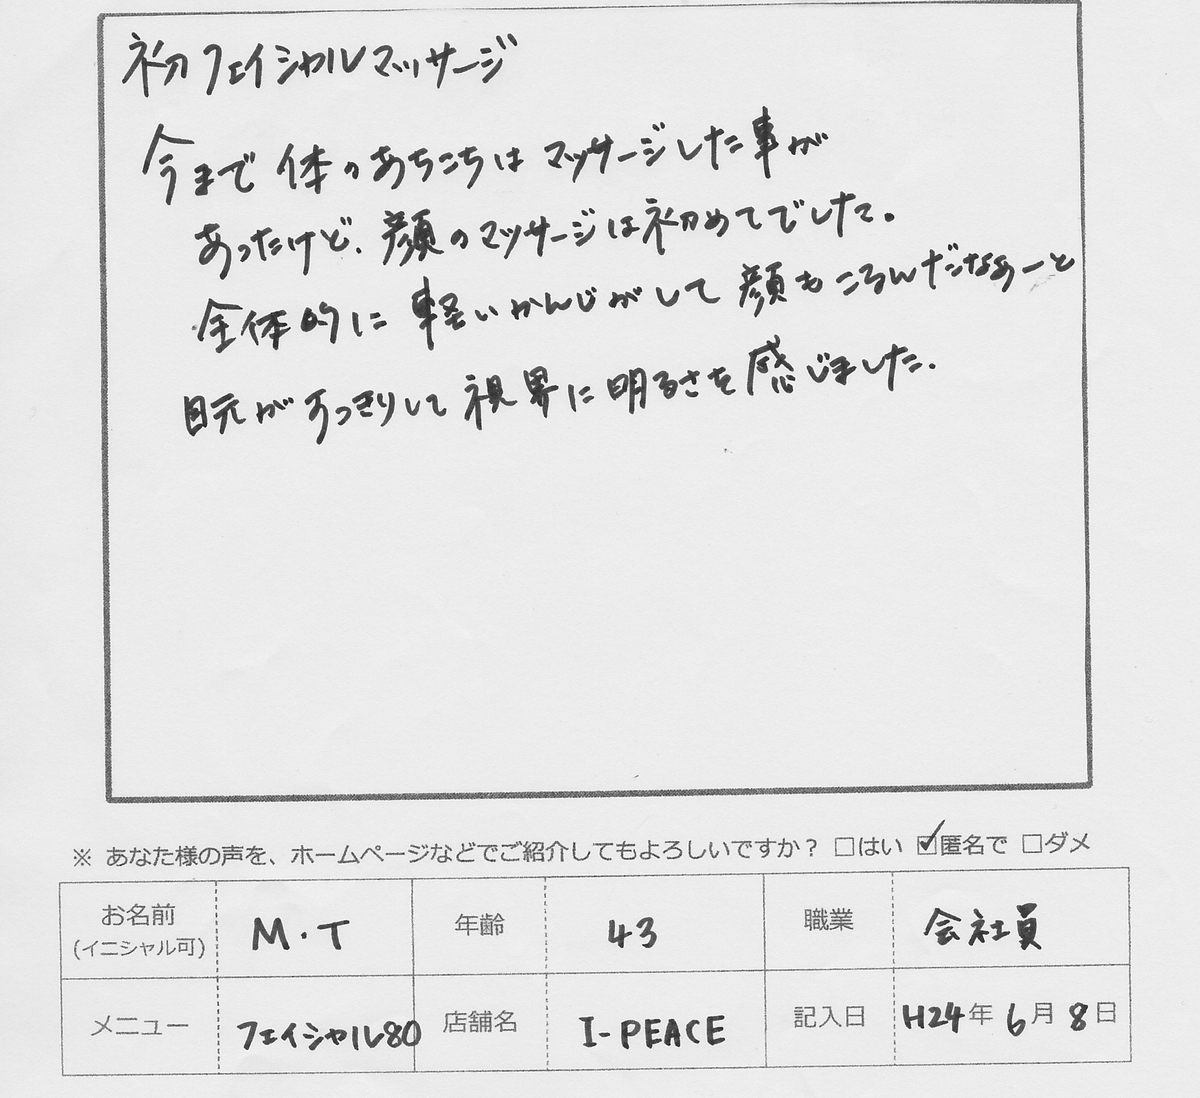 初フェイシャルマッサージ
今まで体のあちこちはマッサージした事が
あったけど、顔のマッサージは初めてでした。
全体的に軽いかんじがして顔もこるんだなぁーと
目元がすっきりして視界に明るさを感じました。
※ あなた様の声を、ホームページなどでご紹介してもよろしいですか？ □はい ☑匿名で □ダメ
お名前 (イニシャル可) M・T 年齢 43 職業 会社員
メニュー フェイシャル80 店舗名 I-PEACE 記入日 H24年6月8日